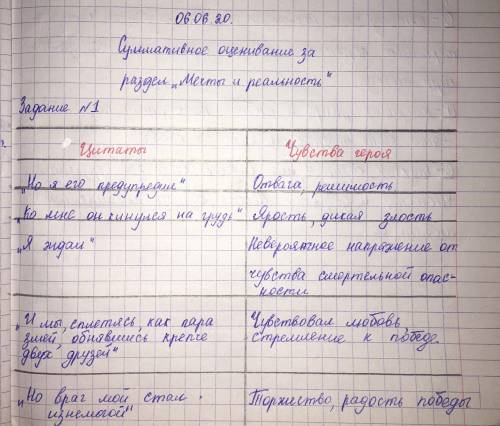 06.06.20.
Суммативное оценивание за
раздел „Мечты и реальность"
Задание №1
Цитаты
Чувства героя
„Но я его предупредил"
Отвага, решимость.
„Ко мне он кинулся на грудь"
Ярость, дикая злость
„Я ждал"
Невероятное напряжение от
чувства смертельной опас-
ности
„И мы, сплетясь, как пара
змей, обнявшись крепче
двух друзей"
Чувствовал любовь,
стремление к победе.
„Но враг мой стал
изнемогой"
Торжество, радость победы